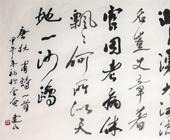 名豈文章著
官因老病休
飄何所似天
地一沙鷗
唐杜甫詩一首
甲午年初於